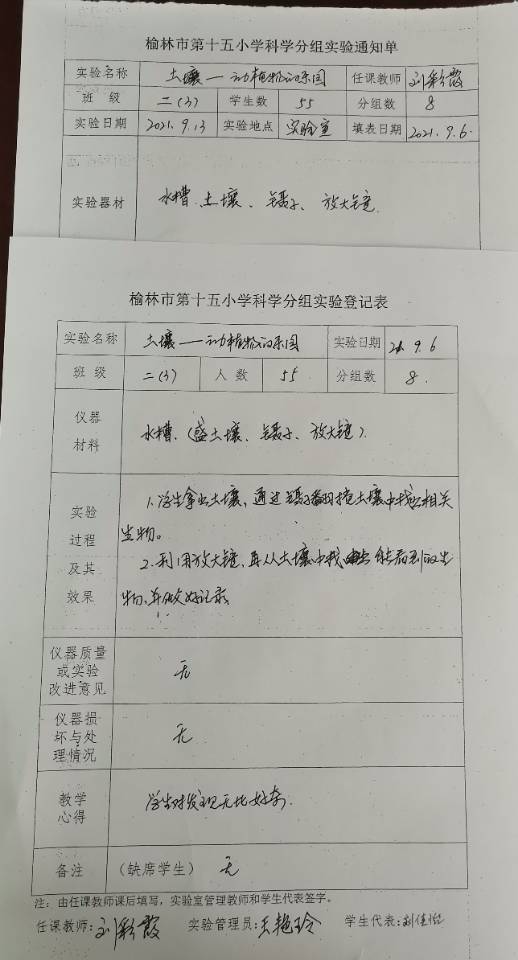 榆林市第十五小学科学分组实验通知单
实验名称 土壤——动植物的乐园 任课教师 刘彩霞
班 级 二(3) 学生数 55 分组数 8
实验日期 2021.9.13 实验地点 实验室 填表日期 2021.9.6.
实验器材 水槽、土壤、镊子、放大镜
榆林市第十五小学科学分组实验登记表
实验名称 土壤——动植物的乐园 实验日期 21.9.6
班 级 二(3) 人 数 55 分组数 8.
仪器
材料
水槽.(盛土壤、镊子、放大镜).
实验
过程
及其
效果
1.学生拿出土壤,通过镊子翻挖土壤中找出相关
生物。
2.利用放大镜,再从土壤中找出能看到的生
物,并做好记录
仪器质量
或实验
改进意见
无
仪器损
坏与处
理情况
无
教学
心得
学生对发现无比好奇.
备注 (缺席学生) 无
注:由任课教师课后填写,实验室管理教师和学生代表签字。
任课教师:刘彩霞 实验管理员:王艳玲 学生代表:刘佳